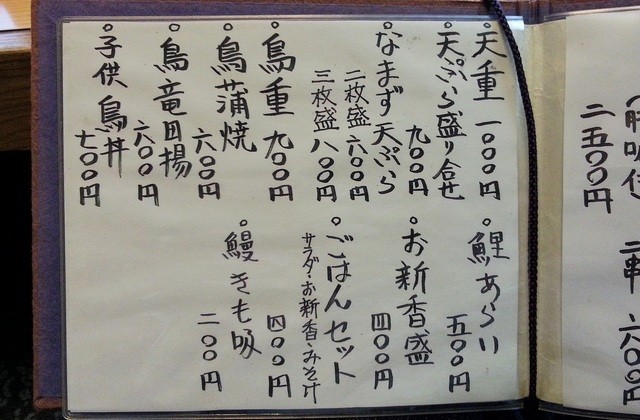 。天重 一〇〇〇円
。天ぷら盛り合せ
九〇〇円
。なまず天ぷら
二枚盛 六〇〇円
三枚盛 八〇〇円
。鳥重 九〇〇円
。鳥蒲焼
六〇〇円
。鳥竜田揚
六〇〇円
。子供鳥丼
七〇〇円
。鯉あらい
五〇〇円
。お新香盛
四〇〇円
。ごはんセット
サラダ・お新香・みそ汁
四〇〇円
。鰻きも吸
二〇〇円
二五〇〇円
二串 六〇〇円